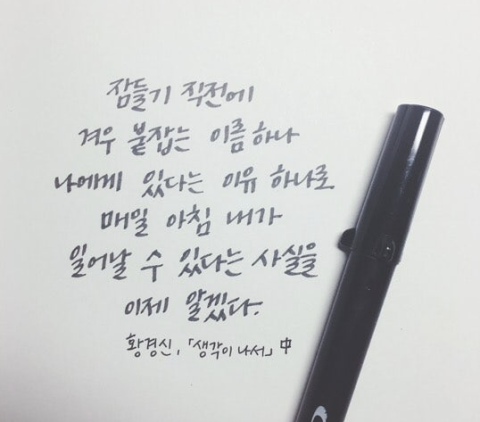 잠들기 직전에
겨우 붙잡는 이름 하나
나에게 있다는 이유 하나로
매일 아침 내가
일어날 수 있다는 사실을
이제 알겠다.
황경신, 「생각이 나서」 中